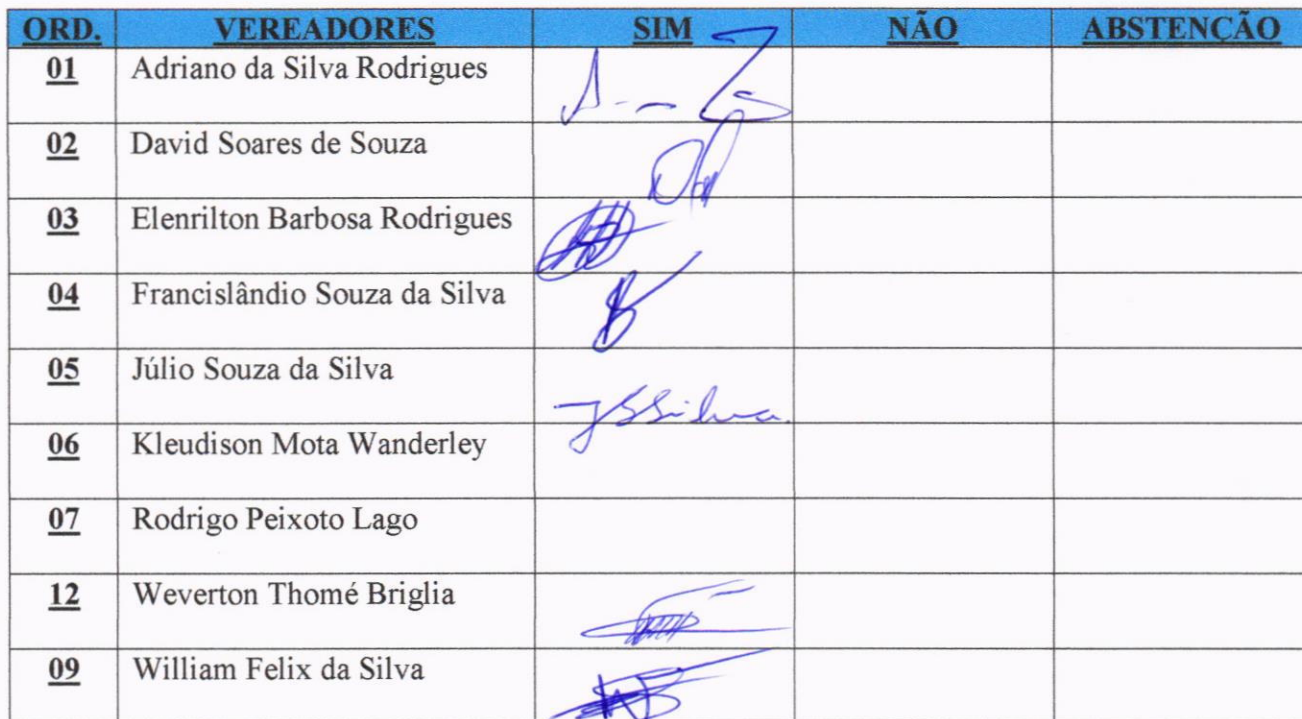 ORD. VEREADORES SIM NÃO ABSTENÇÃO
01 Adriano da Silva Rodrigues
02 David Soares de Souza
03 Elenrilton Barbosa Rodrigues
04 Francislândio Souza da Silva
05 Júlio Souza da Silva JSSilva.
06 Kleudison Mota Wanderley
07 Rodrigo Peixoto Lago
12 Weverton Thomé Briglia
09 William Felix da Silva